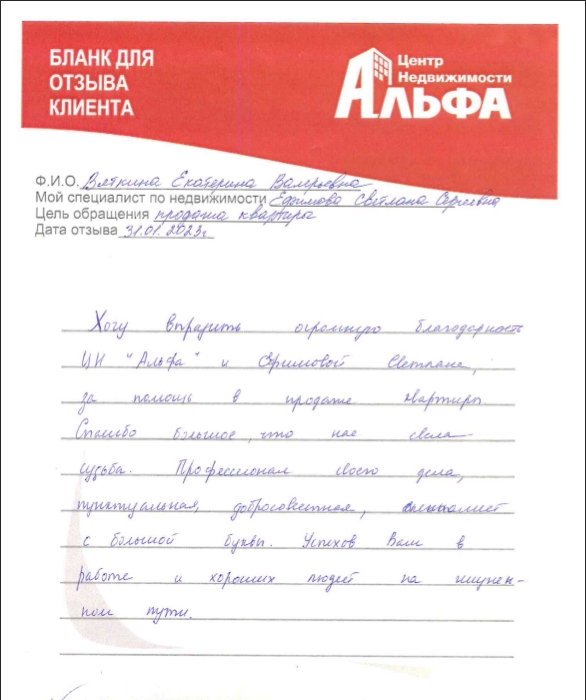 БЛАНК ДЛЯ
ОТЗЫВА
КЛИЕНТА
Центр
Недвижимости
АЛЬФА
Ф.И.О. Вяткина Екатерина Валерьевна
Мой специалист по недвижимости Ефимова Светлана Сергеевна
Цель обращения продажа квартиры
Дата отзыва 31.01.2023г
Хочу выразить огромную благодарность
ЦН "Альфа" и Ефимовой Светлане,
за помощь в продаже квартиры.
Спасибо большое, что нас свела
судьба. Профессионал своего дела,
пунктуальная, добросовестная, специалист
с большой буквы. Успехов Вам в
работе и хороших людей на жизнен-
ном пути.